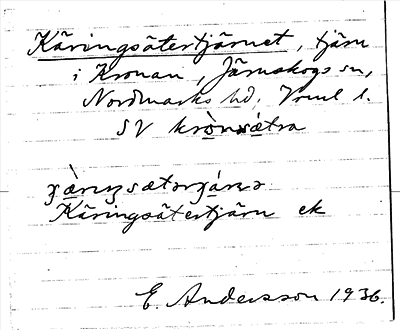 Käringsätertjärnet, tjärn
i Kronan, Järnskogs sn,
Nordmarks hd, Vrml l.
SV krònsǽtra
Käringsätertjärn ek
E. Andersson 1936.